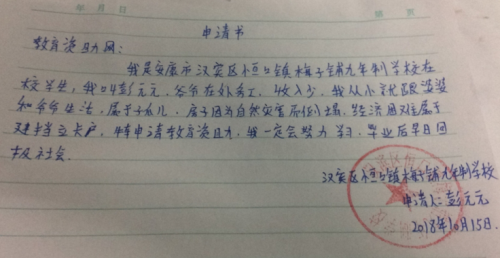 年 月 日 第 页
申请书
教育资助网：
我是安康市汉滨区恒口镇梅子铺九年制学校在
校学生，我叫彭元元，爷爷在外务工，收入少，我从小就跟婆婆
和爷爷生活，属于孤儿，房子因为自然灾害而倒塌，经济困难属于
建档立卡户，特申请教育资助，我一定会努力学习，毕业后早日回
报社会。
汉滨区恒口镇梅子铺九年制学校
申请人：彭元元
2018年10月15日.